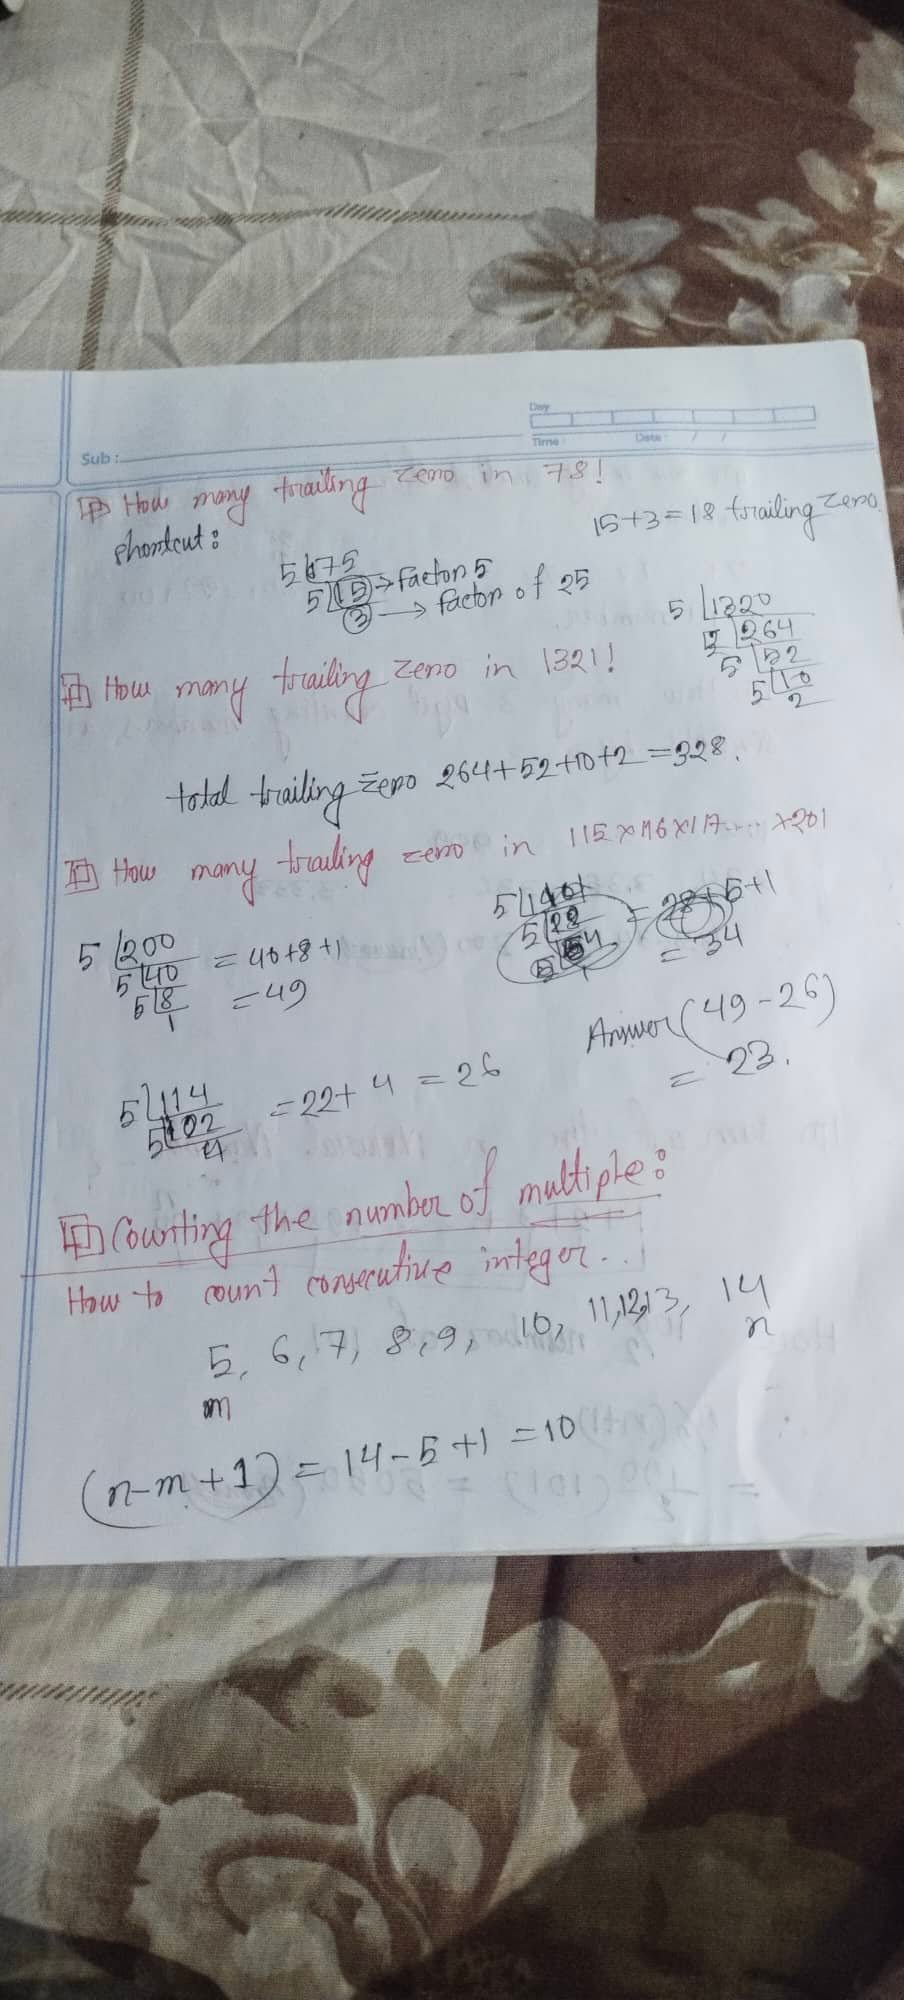 Day
Time: Date: / /
Sub:
How many trailing zero in 78!
shortcut:
15+3=18 trailing zero
5 75
5 15 → factor 5
3 → factor of 25
How many trailing zero in 1321!
5 1320
5 264
5 52
5 10
2
total trailing zero 264+52+10+2=328.
How many trailing zero in 115×116×117.... ×201
5 200
5 40 = 40+8+1
5 8 = 49
1
= 28+5+1
= 34
5 114
5 22 = 22+4 = 26
4
Answer (49-26)
= 23.
Counting the number of multiple:
How to count consecutive integer..
5, 6, 7, 8, 9, 10, 11, 12, 13, 14
m n
(n-m+1) = 14-5+1 = 10